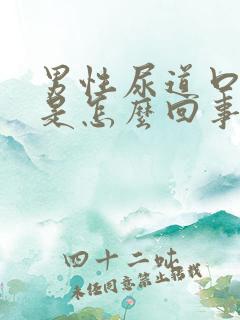 男性尿道口
是怎麼回事
四十二
未任同意禁止搭載